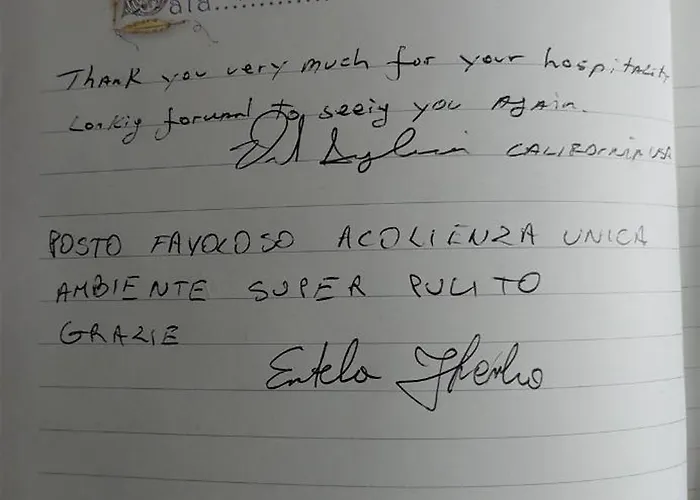 ala..............
Thank you very much for your hospitality
Lookig forward to seeig you Again.
CALIFORNIA USA
POSTO FAVOLOSO ACOLIENZA UNICA
AMBIENTE SUPER PULITO
GRAZIE
Entela